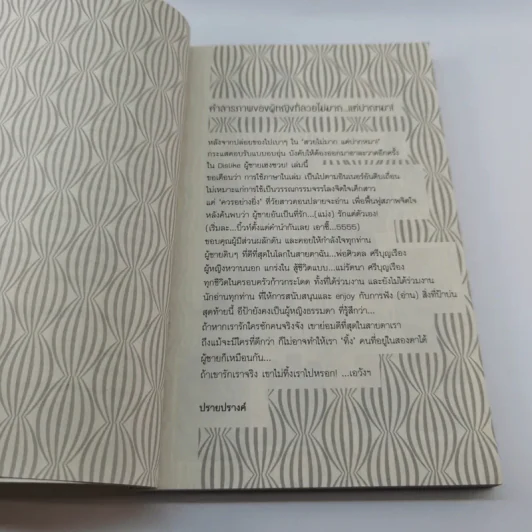 คำสารภาพของผู้หญิงที่สวยไม่มาก...แต่ปากหมา!
หลังจากปล่อยของไปเบาๆ ใน "สวยไม่มาก แต่ปากหมา"
กระแสตอบรับแบบอบอุ่น บังคับให้ต้องออกมาอาละวาดอีกครั้ง
ใน Dislike ผู้ชายเฮงซวย! เล่มนี้
ขอเตือนว่า การใช้ภาษาในเล่ม เป็นไปตามอินเนอร์อันดิบเถื่อน
ไม่เหมาะแก่การใช้เป็นวรรณกรรมจรรโลงจิตใจเด็กสาว
แต่ 'ควรอย่างยิ่ง' ที่วัยสาวตอนปลายจะอ่าน เพื่อฟื้นฟูสภาพจิตใจ
หลังค้นพบว่า ผู้ชายอันเป็นที่รัก...(แม่ง) รักแต่ตัวเอง!
(เริ่มละ...บิ้วท์ตั้งแต่คำนำกันเลย เอาซี้...5555)
ขอบคุณผู้มีส่วนผลักดัน และคอยให้กำลังใจทุกท่าน
ผู้ชายดิบๆ ที่ดีที่สุดในโลกในสายตาฉัน...พ่อศิวดล ศรีบุญเรือง
ผู้หญิงหวานนอก แกร่งใน สู้ชีวิตแบบ...แม่รัตนา ศรีบุญเรือง
ทุกชีวิตในครอบครัวก้าวกระโดด ทั้งที่ได้ร่วมงาน และยังไม่ได้ร่วมงาน
นักอ่านทุกท่าน ที่ให้การสนับสนุนและ enjoy กับการฟัง (อ่าน) สิ่งที่ป้าบ่น
สุดท้ายนี้ อีป้ายังคงเป็นผู้หญิงธรรมดา ที่รู้สึกว่า...
ถ้าหากเรารักใครซักคนจริงจัง เขาย่อมดีที่สุดในสายตาเรา
ถึงแม้จะมีใครที่ดีกว่า ก็ไม่อาจทำให้เรา 'ทิ้ง' คนที่อยู่ในสองตาได้
ผู้ชายก็เหมือนกัน...
ถ้าเขารักเราจริง เขาไม่ทิ้งเราไปหรอก! ...เอวังฯ
ปรายปรางค์